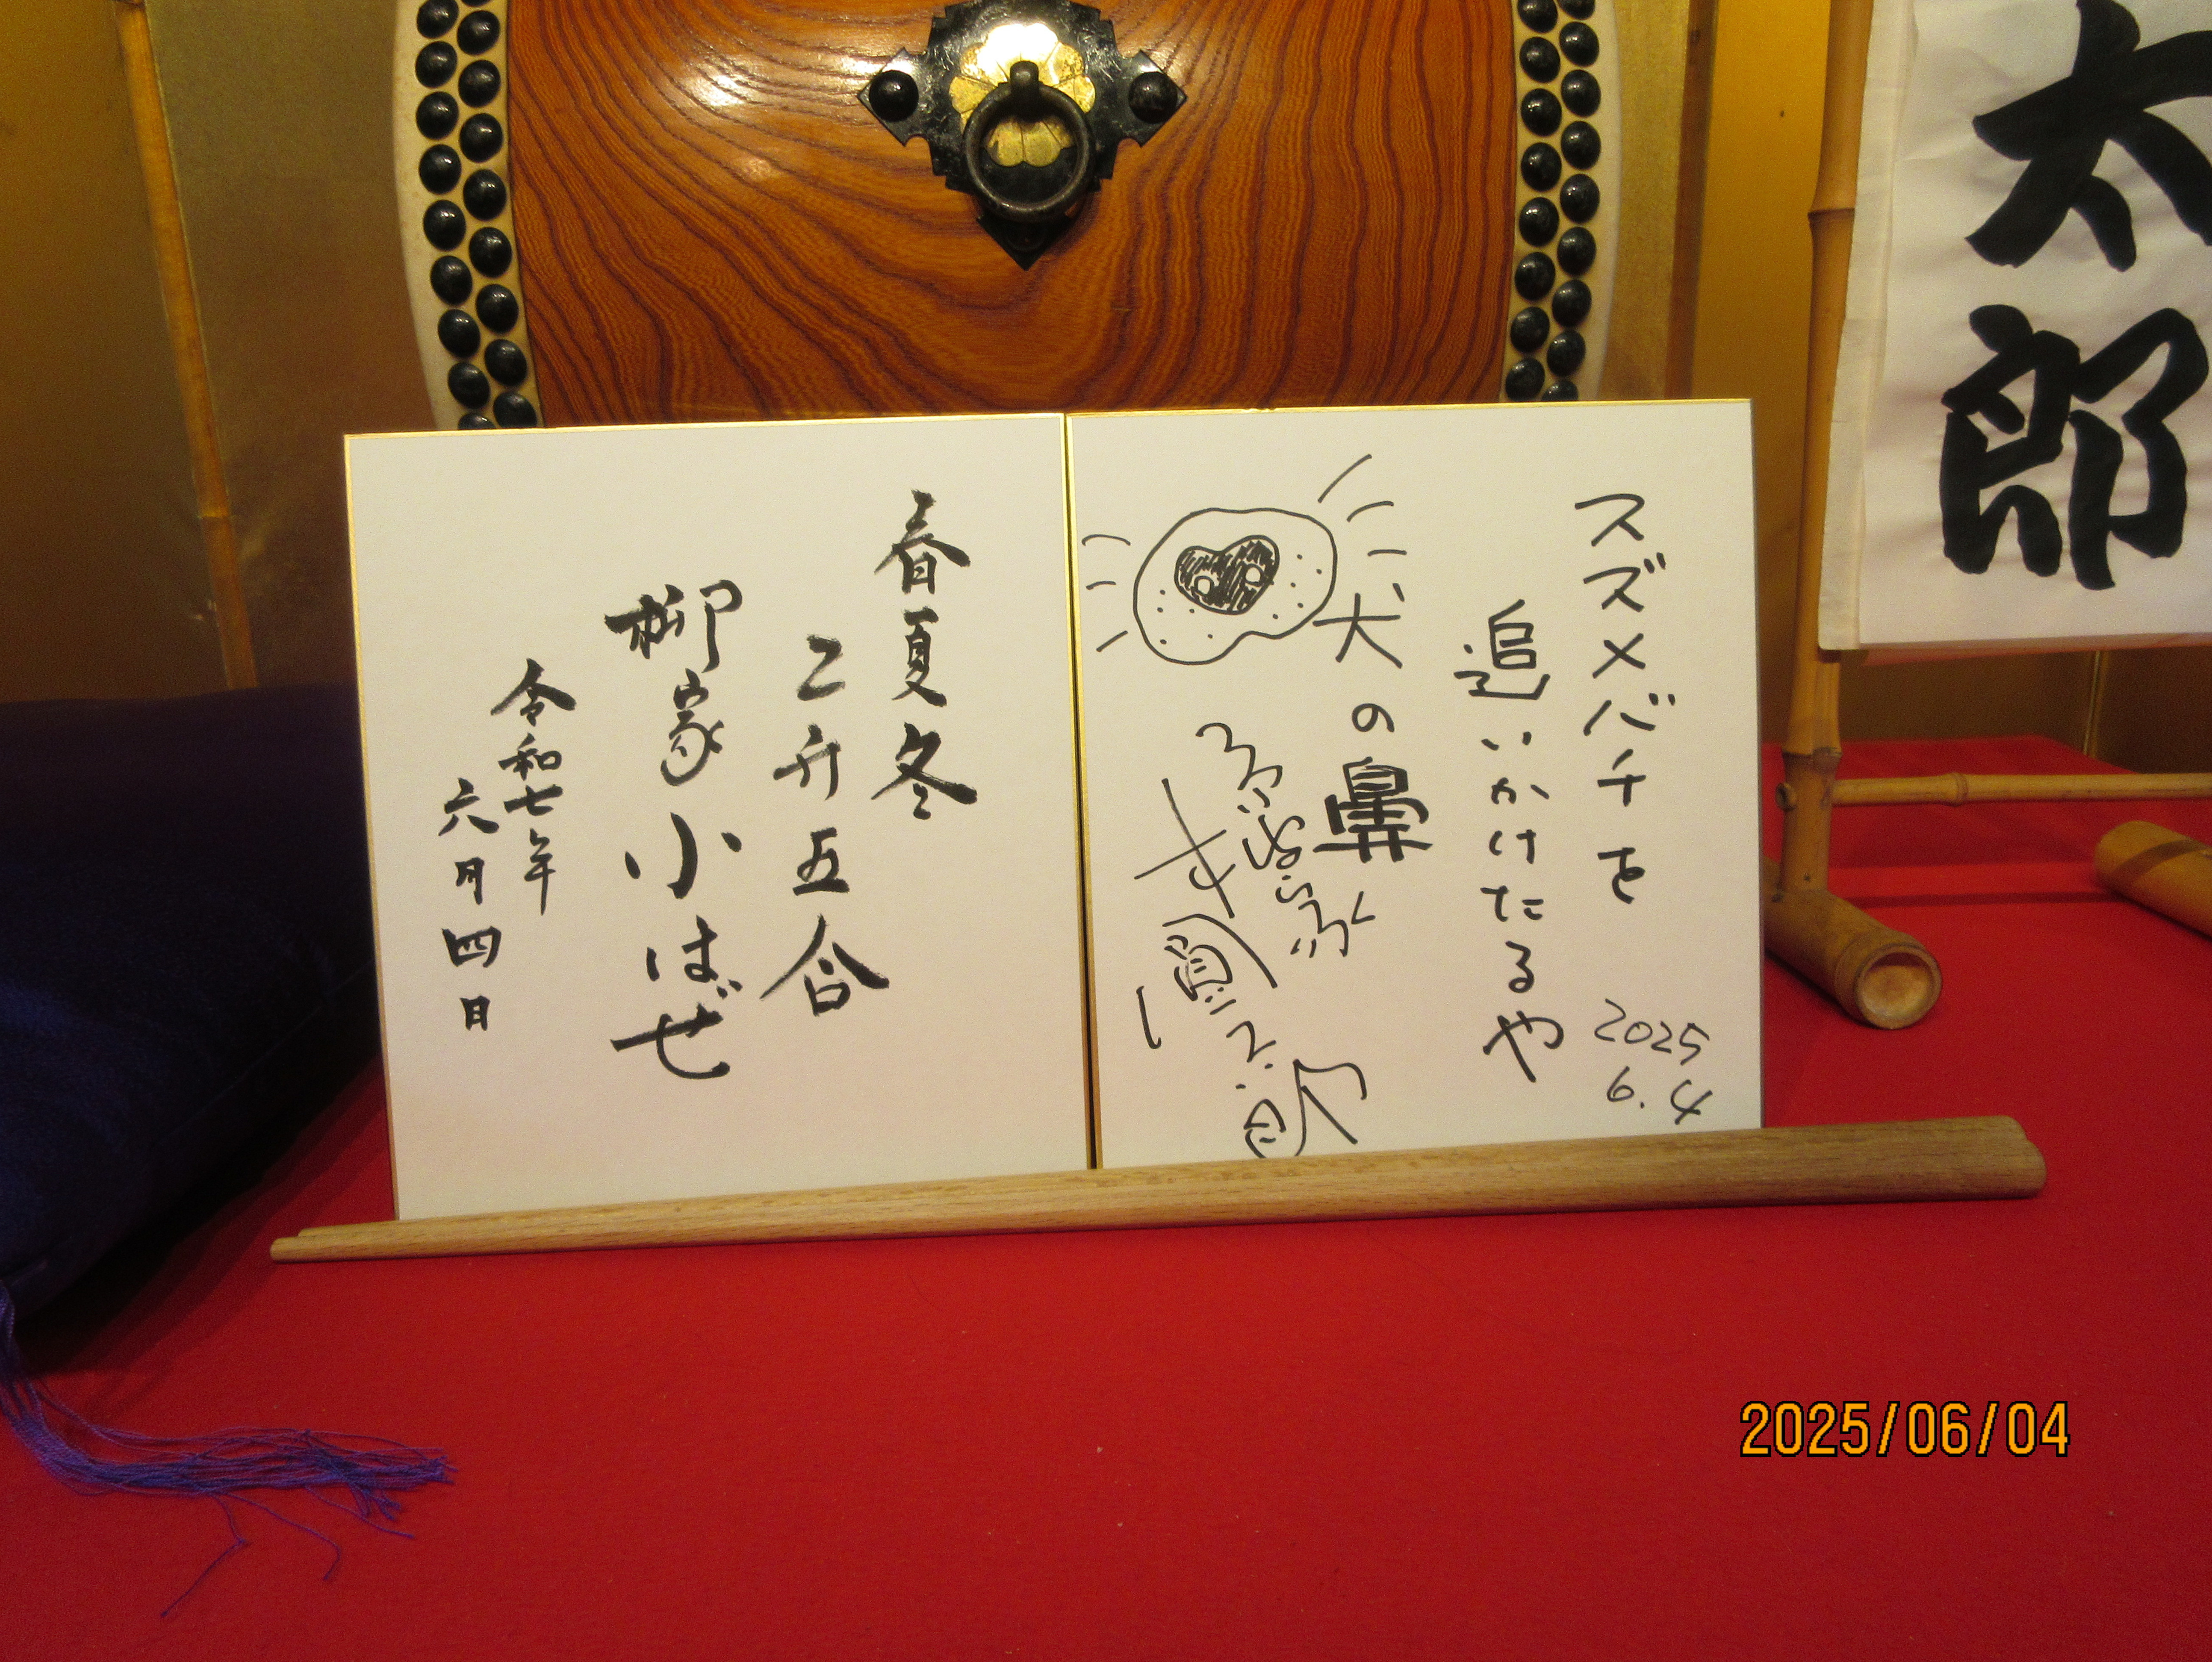 太郎
スズメバチを
追いかけたるや
犬の鼻
2025
6.4
春夏冬
二升五合
柳家小はぜ
令和七年
六月四日
2025/06/04